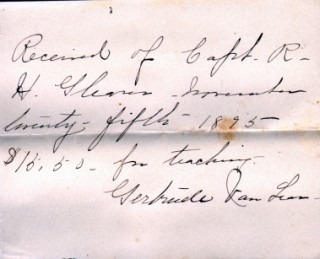 Received of Capt. R.
H. Gleaves November
twenty-fifth 1895
$15.50 for teaching.
Gertrude Van